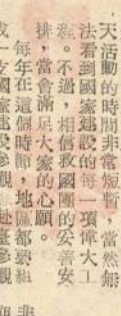 天活動的時間非常短暫，當然無
法看到國家建設的每一項偉大工
程。不過，相信救國團的妥善安
排，當會滿足大家的心願。
每年在這個時節，地區都要組